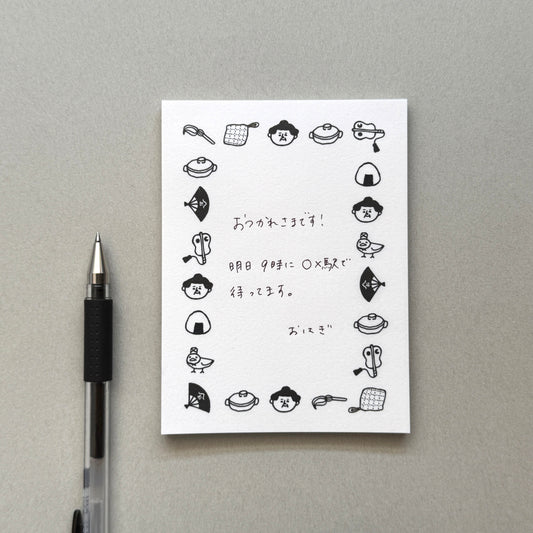 おつかれさまです!
明日 9時に ○×駅で
待ってます。
おにぎ